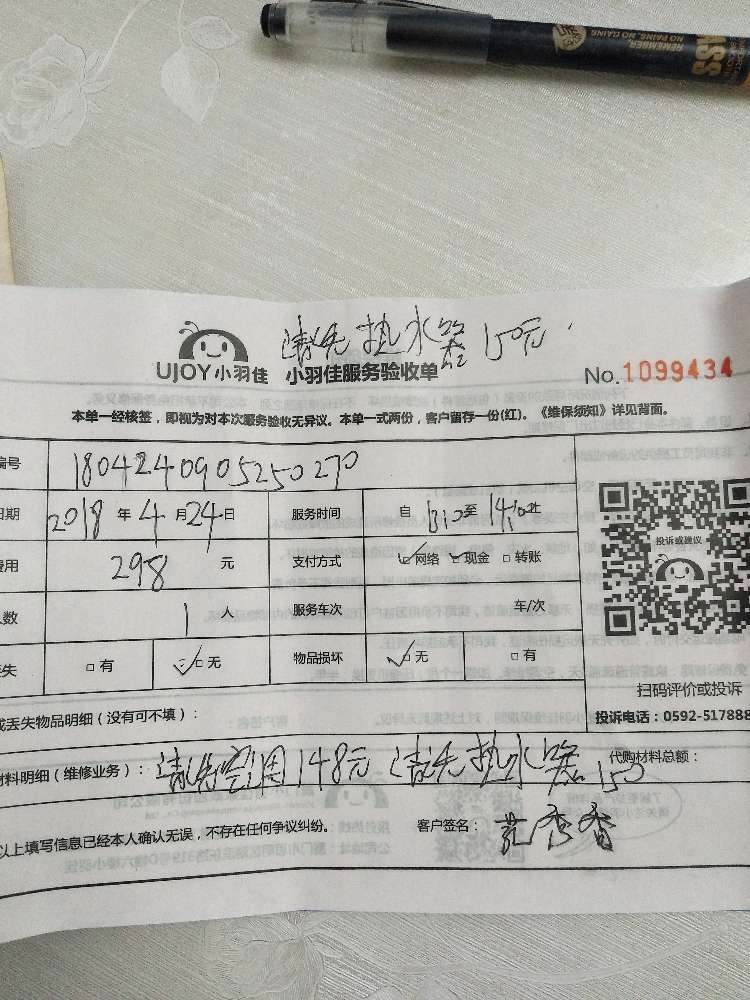 REMEMBER,
NO PAINS, NO GAINS
ASS
清洗热水器 150元
UJOY小羽佳 小羽佳服务验收单 No.1099434
本单一经核签，即视为对本次服务验收无异议。本单一式两份，客户留存一份(红)。《维保须知》详见背面。
编号 1804240905250270
日期 2018 年 4 月 24 日 服务时间 自 13:10 至 14:10 止
费用 298 元 支付方式 ✓网络 ✓现金 □转账
投诉或建议
人数 1 人 服务车次 车/次
丢失 □有 ✓□无 物品损坏 ✓□无 □有
扫码评价或投诉
或丢失物品明细（没有可不填）： 投诉电话：0592-517888
材料明细（维修业务）：清洗空调148元 清洗热水器150 代购材料总额：
以上填写信息已经本人确认无误，不存在任何争议纠纷。 客户签名：秀香